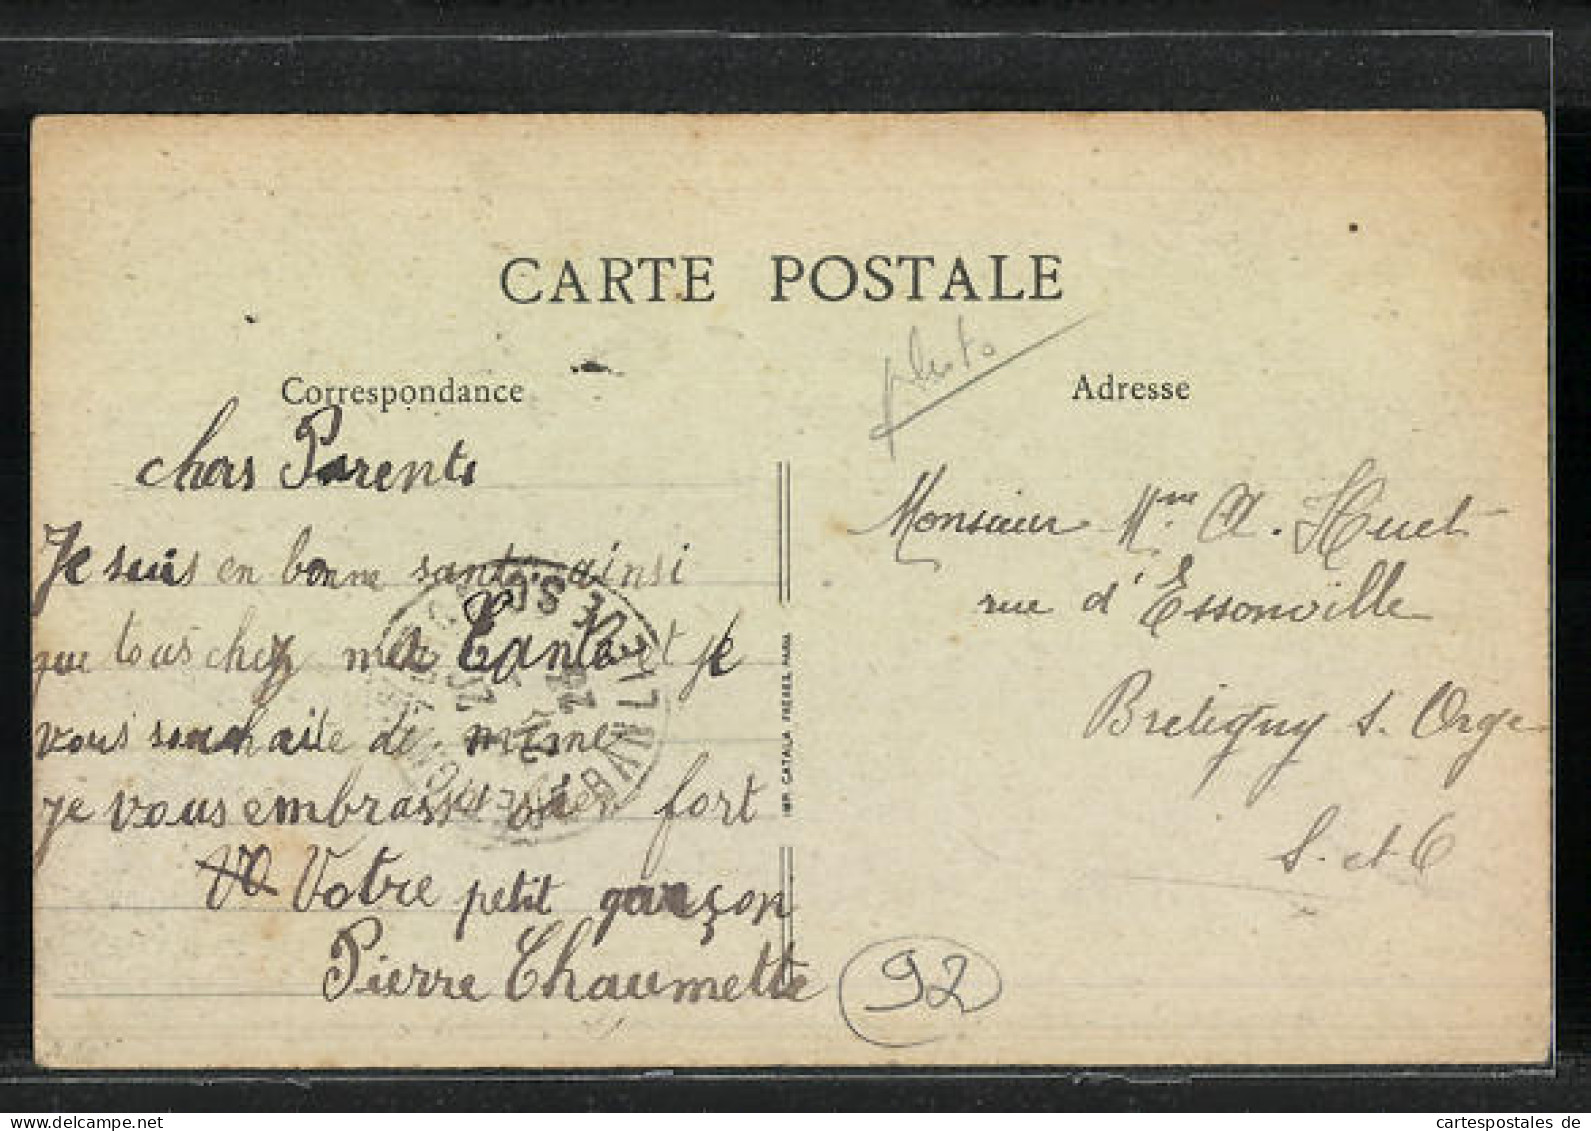 CARTE POSTALE
photo
Correspondance
Adresse
chers Parents
Je suis en bonne santé ainsi
que tous chez ma Tante et je
vous souhaite de même
je vous embrasse bien fort
Votre petit garçon
Pierre Chaumette
IMP. CATALA FRÈRES, PARIS
Monsieur Mme A. Huet
rue d'Essonville
Bretigny s. Orge
S. et O
92
cartespostales de